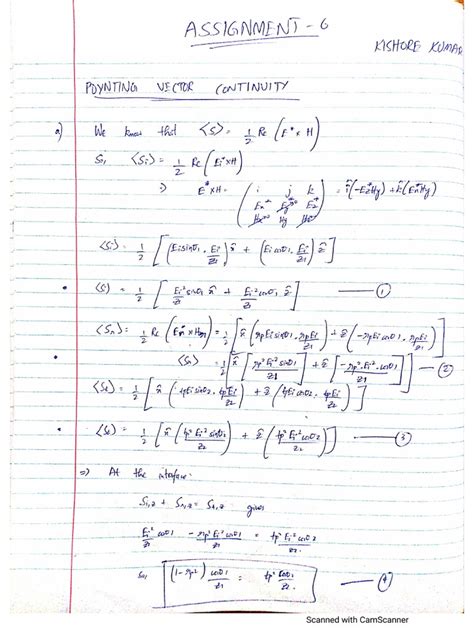 ASSIGNMENT - 6
KISHORE KUMAR
POYNTING VECTOR CONTINUITY
a) We know that <S> = 1/2 Re (E* × H)
So, <Si> = 1/2 Re (Ei* × H)
⇒ E* × H = | i j k Ex* Ey* Ez* Hx Hy Hz | = î(-Ez*Hy) + k̂(Ex*Hy)
<Si> = 1/2 [ (Ei sinθ1 . Ei/z1) x̂ + (Ei cosθ1 . Ei/z1) ẑ ]
<Si> = 1/2 [ Ei² sinθ1/z1 x̂ + Ei² cosθ1/z1 ẑ ] — (1)
<Sr> = 1/2 Re (Er* × Hr) = 1/2 [ x̂ (rpEi sinθ1 . rpEi/z1) + ẑ (-rpEi cosθ1 . rpEi/z1) ]
<Sr> = 1/2 [ x̂ [ rp² Ei² sinθ1/z1 ] + ẑ [ -rp² Ei² cosθ1/z1 ] ] — (2)
<St> = 1/2 [ x̂ (tpEi sinθ2 . tpEi/z2) + ẑ (tpEi cosθ2 . tpEi/z2) ]
<St> = 1/2 [ x̂ (tp² Ei² sinθ2/z2) + ẑ (tp² Ei² cosθ2/z2) ] — (3)
⇒ At the interface
Si,z + Sr,z = St,z gives
Ei² cosθ1/z1 - rp² Ei² cosθ1/z1 = tp² Ei² cosθ2/z2
So, (1 - rp²) cosθ1/z1 = tp² cosθ2/z2 — (4)
Scanned with CamScanner